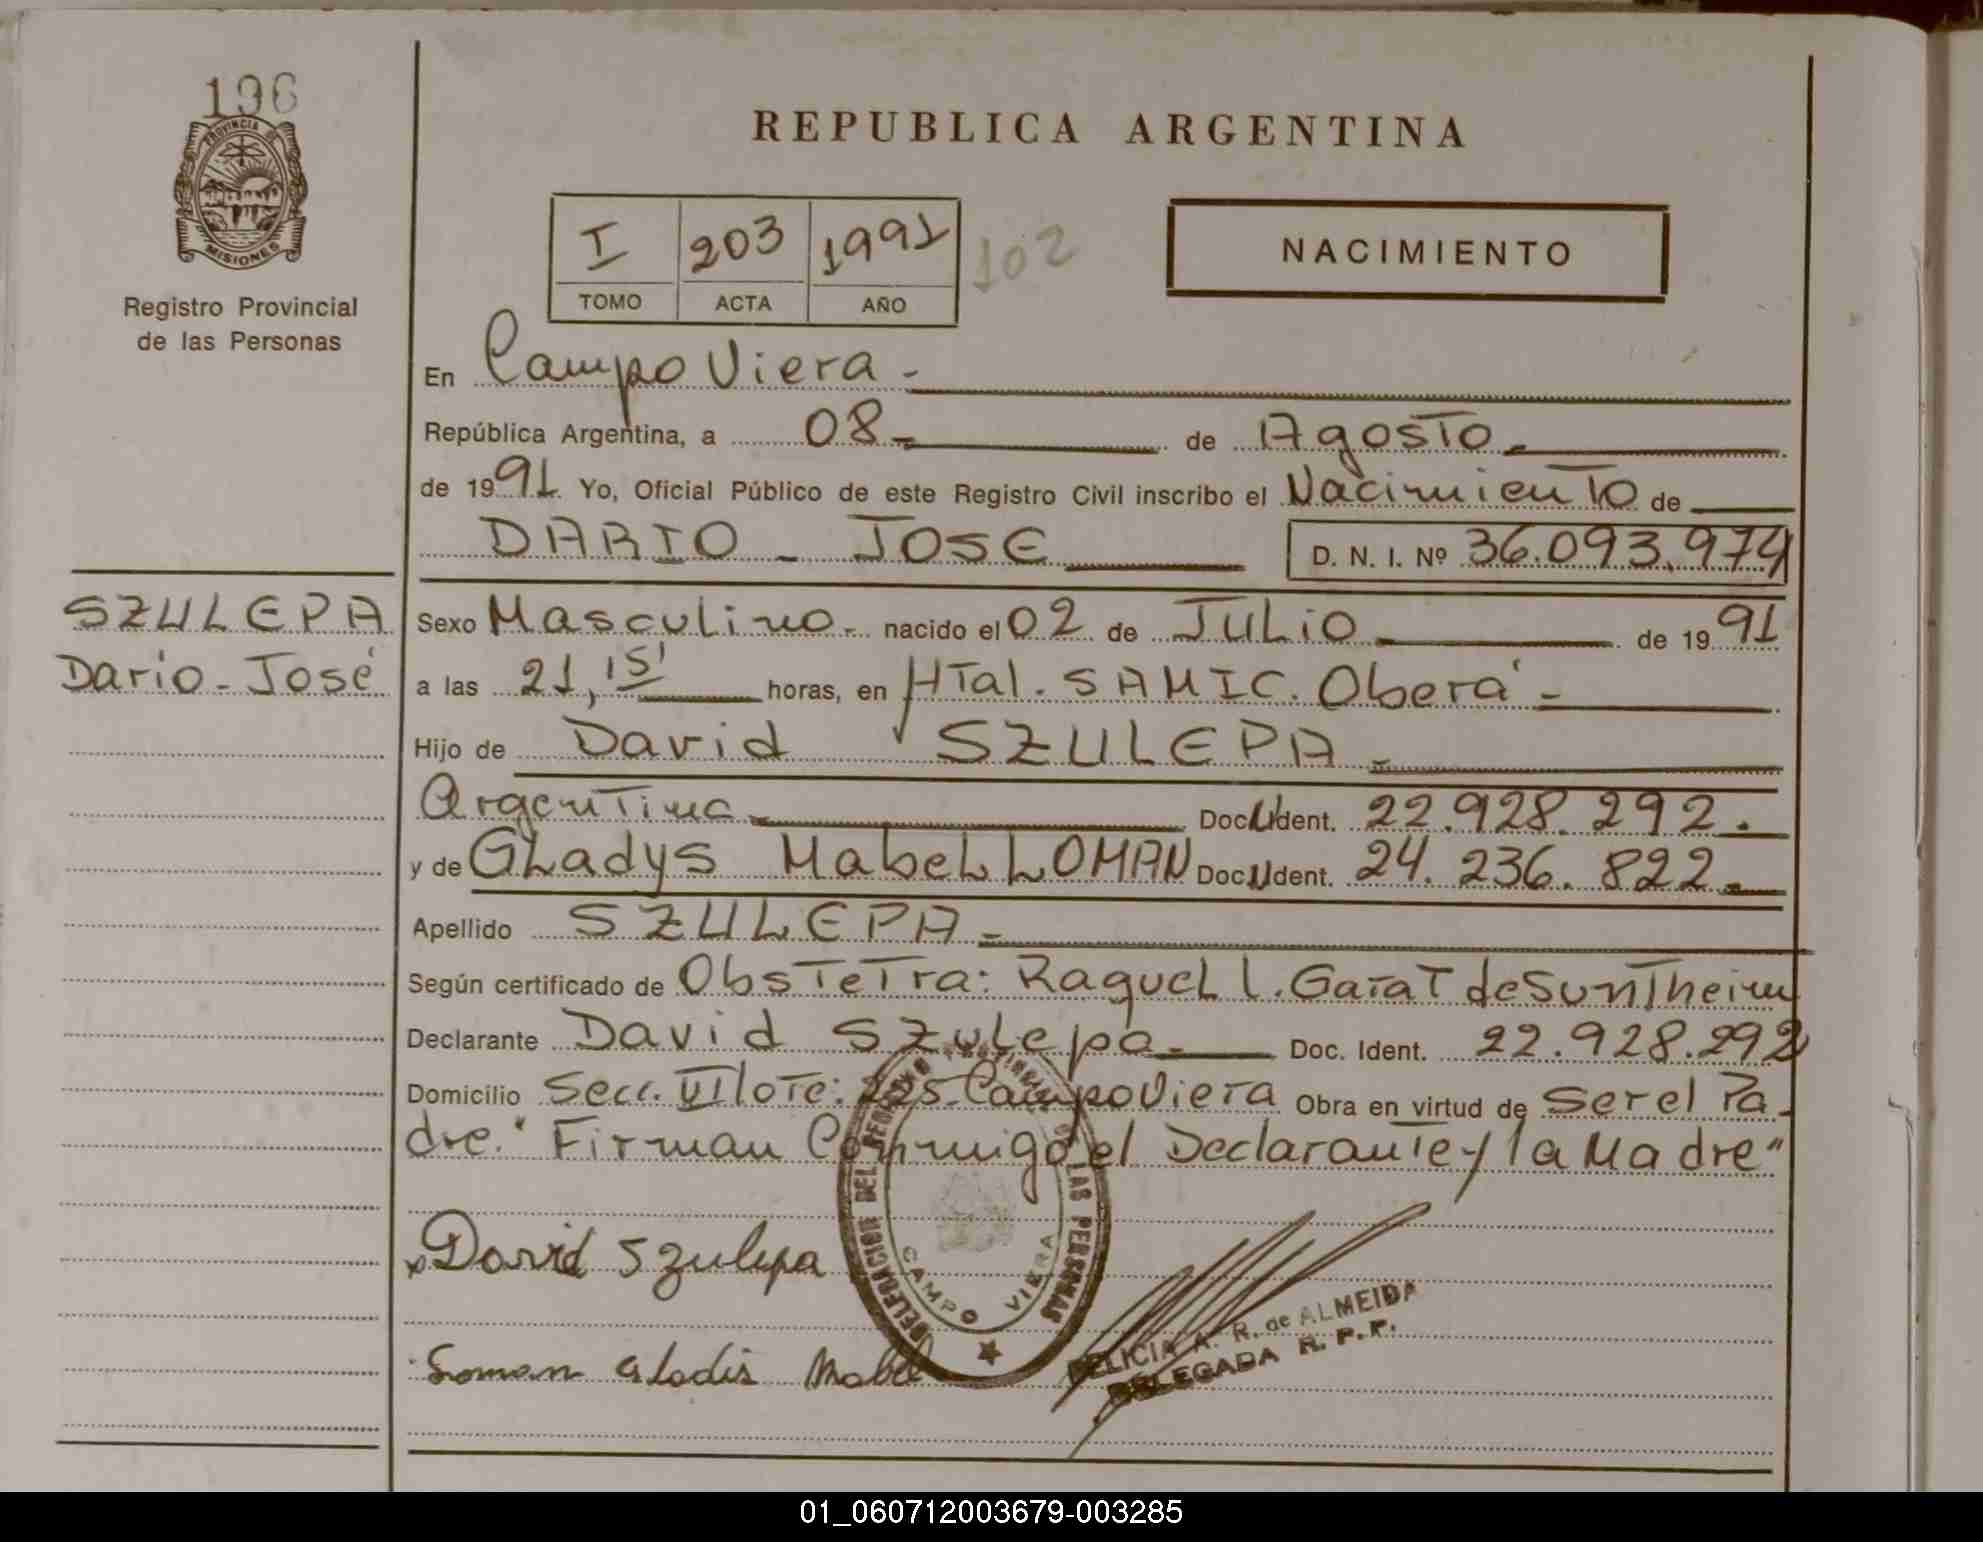 196
PROVINCIA DE
MISIONES
Registro Provincial
de las Personas
REPUBLICA ARGENTINA
I 203 1991 102
TOMO ACTA AÑO
NACIMIENTO
En Campo Viera -
República Argentina, a 08 - de Agosto -
de 1991. Yo, Oficial Público de este Registro Civil inscribo el Nacimiento de
DARIO - JOSE D. N. I. Nº 36.093.974
SZULEPA
Dario - José
Sexo Masculino - nacido el 02 de JULiO de 1991
a las 21,15' horas, en HTal. SAMIC. Oberá -
Hijo de David SZULEPA -
Argentina - Doc. Ident. 22.928.292.
y de GLadys MabeL LOMAN Doc. Ident. 24.236.822 -
Apellido SZULEPA -
Según certificado de ObsTeTra: RaqueL l. Garat de SunTheim
Declarante David Szulepa - Doc. Ident. 22.928.292
Domicilio Secc. VII loTe: 225 - Campo Viera Obra en virtud de Ser el Pa-
dre. "Firman Conmigo el Declarante y la Madre"
David Szulepa
DELEGACION DEL REGISTRO PROVINCIAL DE LAS PERSONAS
CAMPO VIERA
Loman Gladis Mabel
FELICIA A. R. de ALMEIDA
DELEGADA R. P. P.
01_060712003679-003285